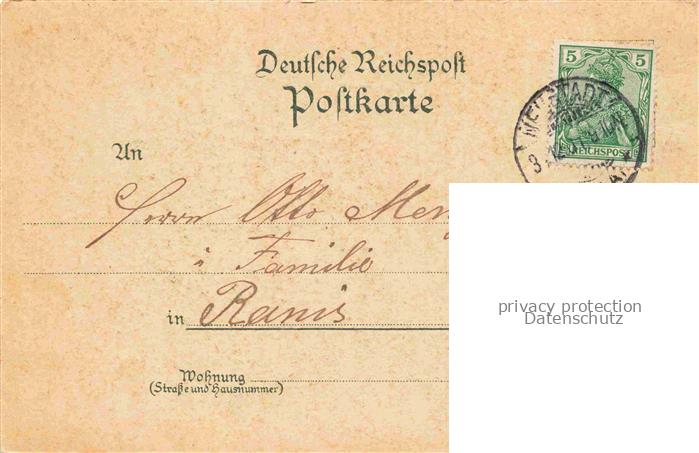 Deutsche Reichspost
Postkarte
5 5
REICHSPOST
NEUSTADT
An
Herrn Otto
à Familie
in Ranis
privacy protection
Datenschutz
Wohnung
(Straße und Hausnummer)